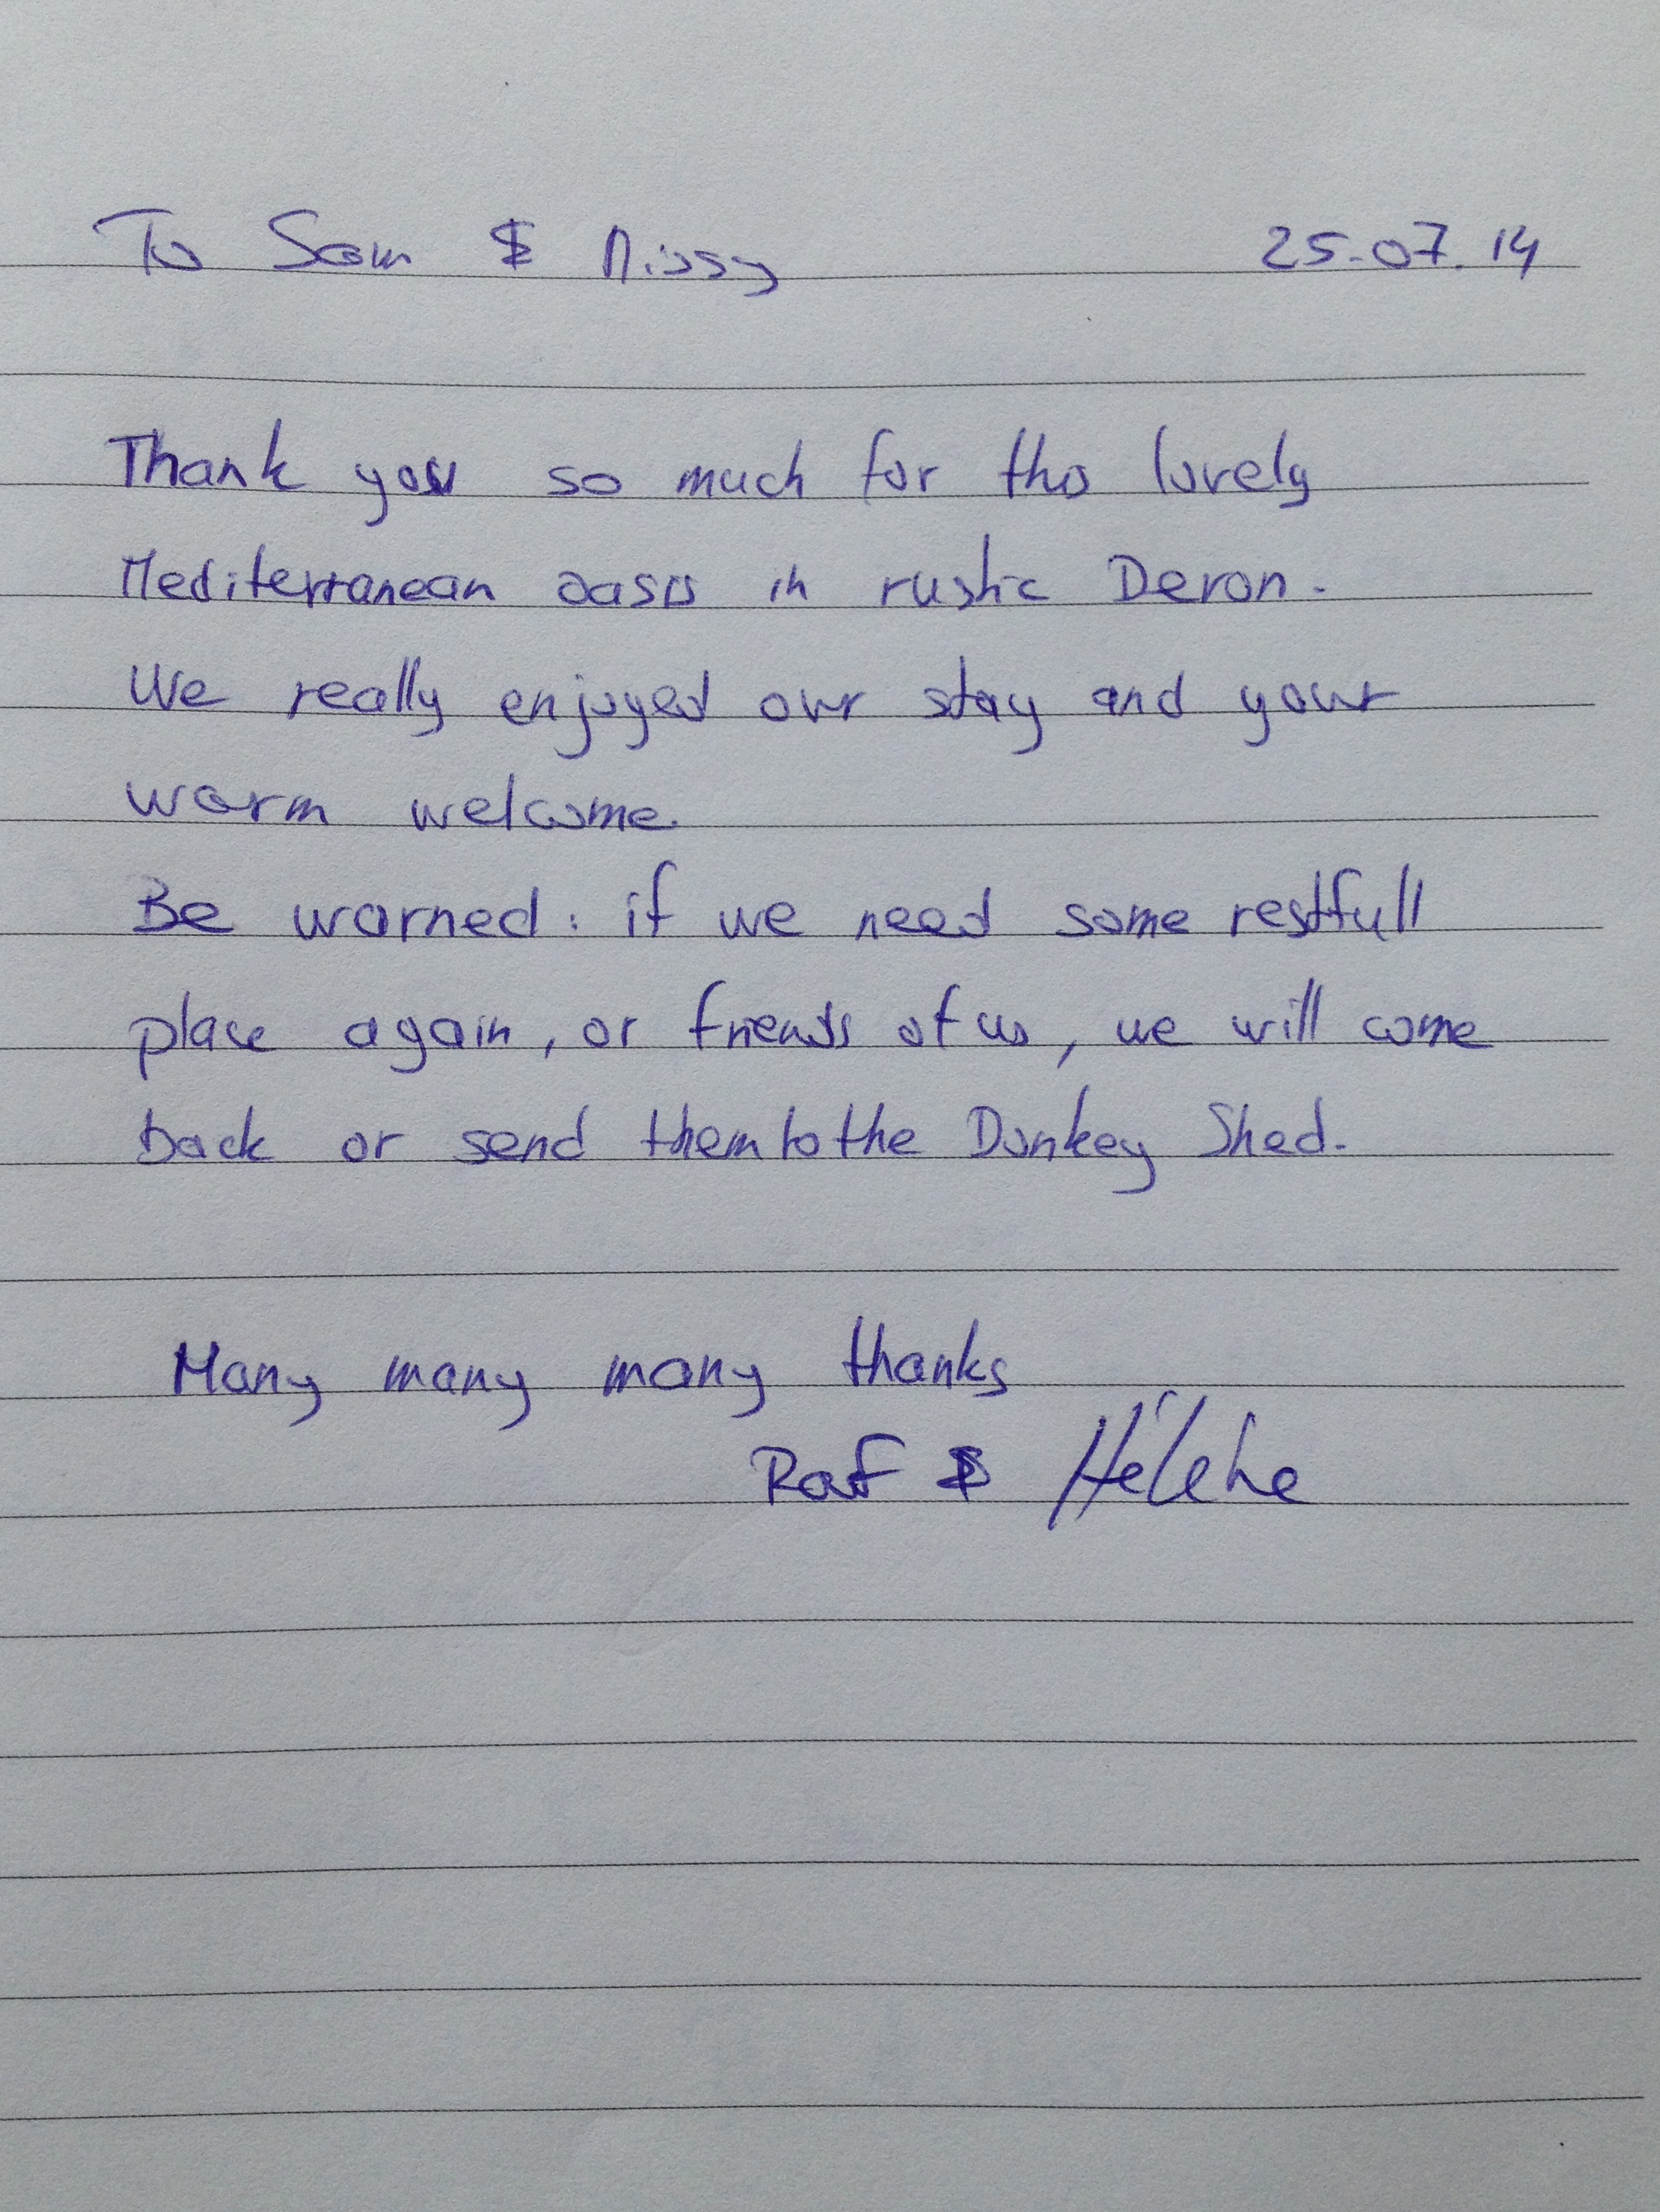 To Sam & Missy 25.07.14
Thank you so much for this lovely
Mediterranean oasis in rustic Devon.
We really enjoyed our stay and your
warm welcome.
Be warned: if we need some restfull
place again, or friends of us, we will come
back or send them to the Donkey Shed.
Many many many thanks
Raf & Hélène